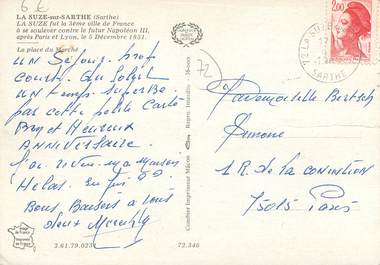 6 €
LA SUZE-sur-SARTHE (Sarthe)
LA SUZE fut la 3ème ville de France
à se soulever contre le futur Napoléon III,
après Paris et Lyon, le 5 Décembre 1851.
La place du Marché
UN Séjour trop
court. du Soleil
UN temps superbe
par cette petite Carte
Bon et Heureux
ANNIVERSAIRE
Helas. en
Bons Baisers à tous
deux
3.61.79.0234
72.346
Combier Imprimeur Mâcon
Repro. Interdite
72
72 LA SUZE
SARTHE
2,00
Mademoiselle
Simone
1 R. de la convention
75015 Paris